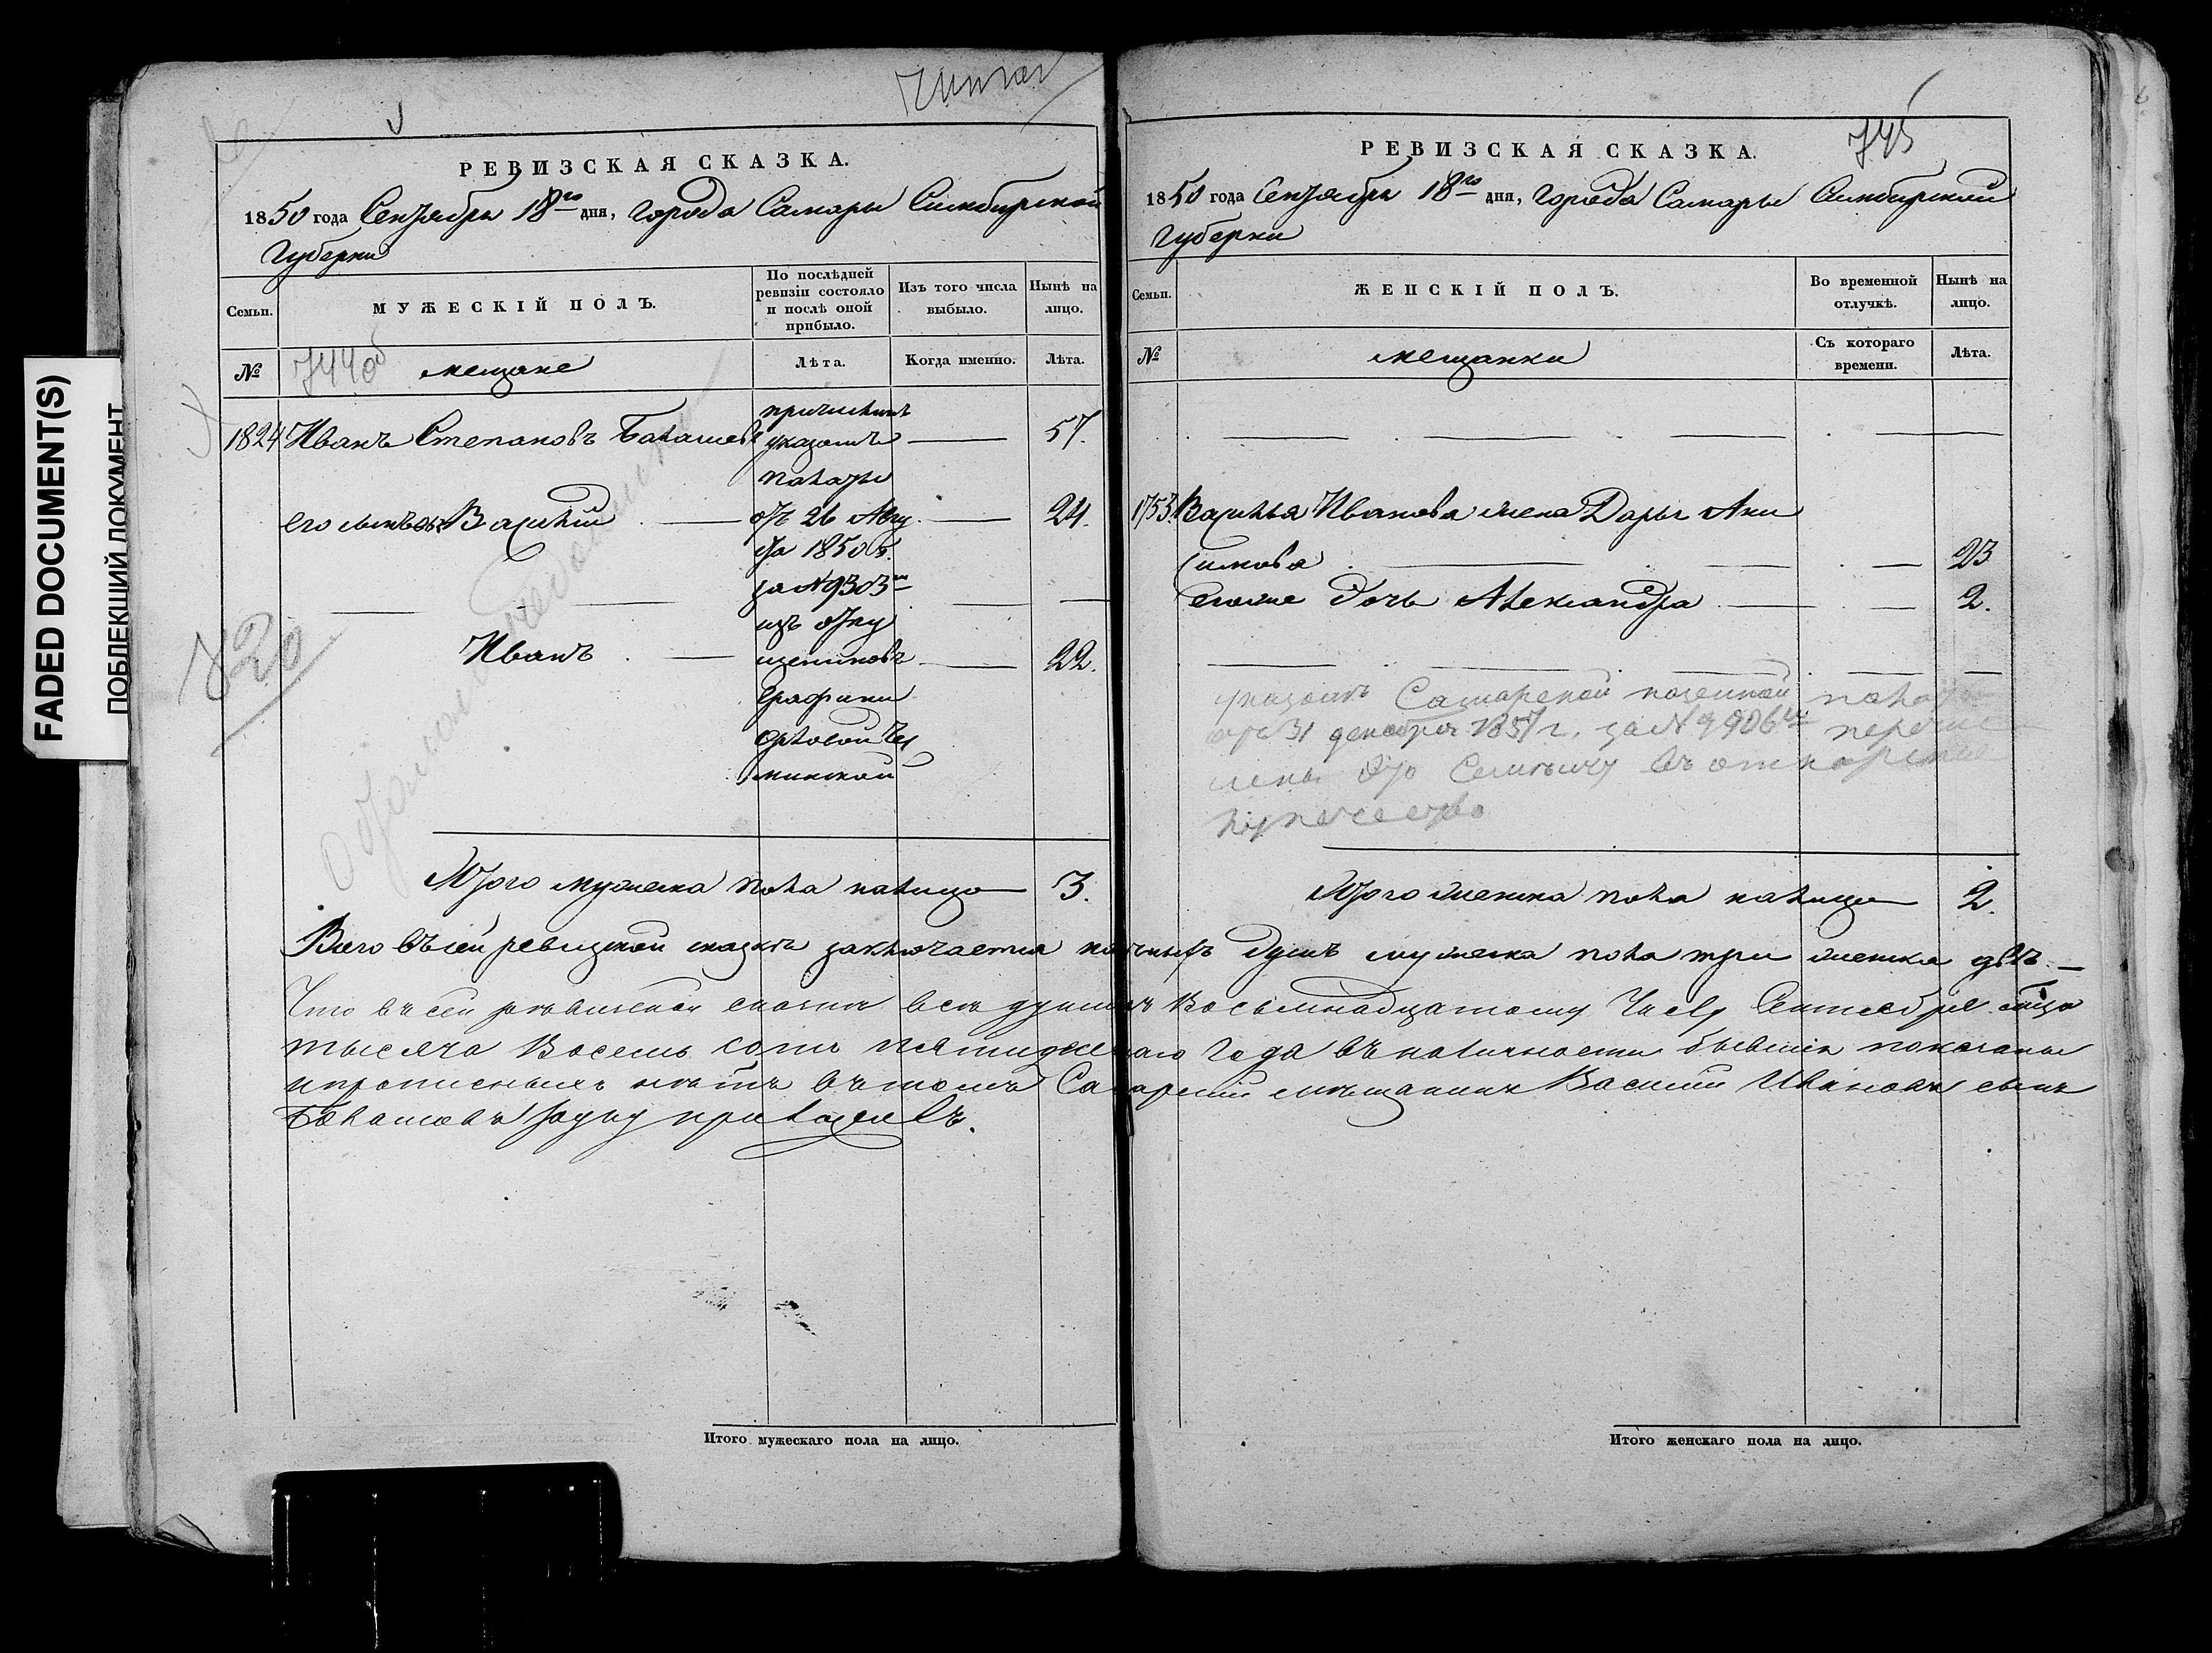 FADED DOCUMENT(S)
ПОБЛЕКШИЙ ДОКУМЕНТ
Читал
РЕВИЗСКАЯ СКАЗКА.
1850 года Сентября 18го дня, города Самары Симбирской
Губерни
Семьи.
МУЖЕСКІЙ ПОЛЪ.
По послѣдней ревизіи состояло и послѣ оной прибыло.
Изъ того числа выбыло.
Нынѣ на лицо.
№
744об
мещане
Лѣта.
Когда именно.
Лѣта.
1824 Иванъ Степановъ Балашевъ 57.
причислинъ
указомъ
палаты
его сынъ Василий 24.
отъ 26 Авгу
ста 1850 г.
за № 9303м
изъ отпу
Иванъ 22.
щениковъ
Графини
Орловой Чес
минской
820
Итого мужеска пола налицо 3.
745
РЕВИЗСКАЯ СКАЗКА.
1850 года Сентября 18го дня, города Самары Симбирской
Губерни
Семьи.
ЖЕНСКІЙ ПОЛЪ.
Во временной отлучкѣ.
Нынѣ на лицо.
№
мещанки
Съ котораго времени.
Лѣта.
1753. Василья Иванова жена Дарья Ани
симова 23
его же дочь Александра 2.
указомъ Самарской казенной палаты
отъ 31 декабря 1857 г. за № 9906м
купечество
Итого женска пола налицо 2.
Всего въ сей ревизской сказке заключается наличныхъ душъ мужеска пола три женска две.
Что въ сей ревизской сказки все души къ Восьмнадцатому Числу Сентебря
тысяча Восемь сотъ пятидесятаго Года въ наличности бывшія показаны
и прописныхъ нѣтъ въ томъ Самарский мѣщанинъ Василий Ивановъ сынъ
Балашовъ руку приложилъ.
Итого мужескаго пола на лицо.
Итого женскаго пола на лицо.